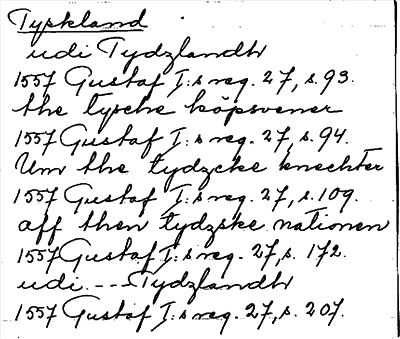 Tyskland
udi Tydzlandh
1557 Gustaf I:s reg. 27, s. 93.
the tysche köpsvener
1557 Gustaf I:s reg. 27, s. 94.
Um the tydzcke knechter
1557 Gustaf I:s reg. 27, s. 109.
aff then tydzske nationen
1557 Gustaf I:s reg. 27, s. 172.
udi --- Tydzlandh
1557 Gustaf I:s reg. 27, s. 207.